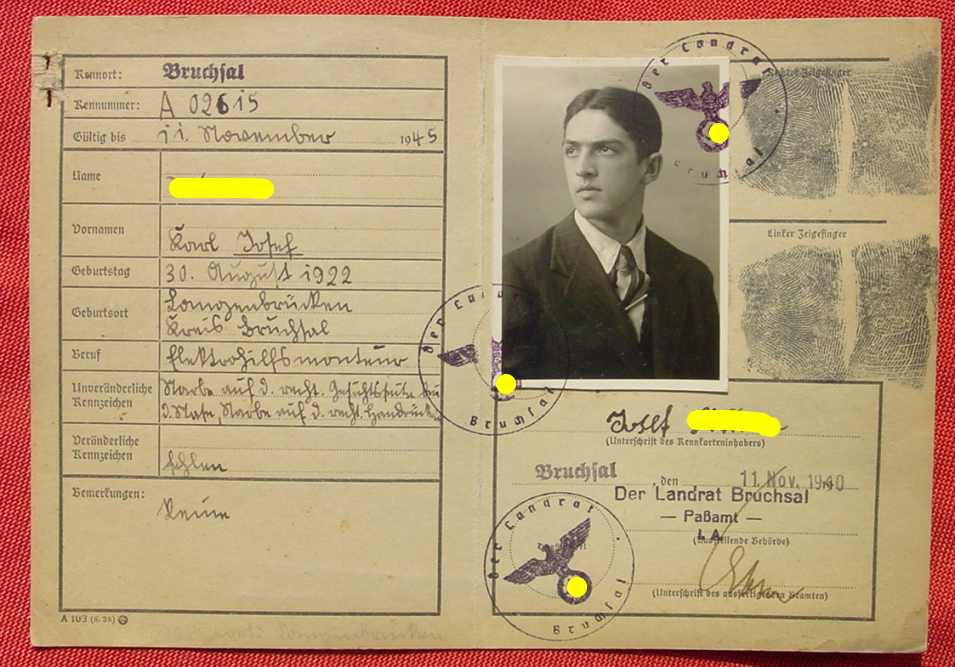 Kennort: Bruchsal
Kennummer: A 02615
Gültig bis 11. November 1945
Name
Vornamen Karl Josef
Geburtstag 30. August 1922
Geburtsort Langenbrücken
Kreis Bruchsal
Beruf Elektrohilfsmonteur
Unveränderliche Kennzeichen Narbe auf d. recht. Gesichtsseite bei
d. Nase, Narbe auf d. recht. Handrücken
Veränderliche Kennzeichen fehlen
Bemerkungen: Keine
A 103 (6. 38)
Der Landrat
Bruchsal
Rechter Zeigefinger
Linker Zeigefinger
Der Landrat
Bruchsal
Josef
(Unterschrift des Kennkarteninhabers)
Bruchsal, den 11. Nov. 1940
Der Landrat Bruchsal
— Paßamt —
I. A.
(Ausstellende Behörde)
(Unterschrift des ausfertigenden Beamten)
Der Landrat
Bruchsal